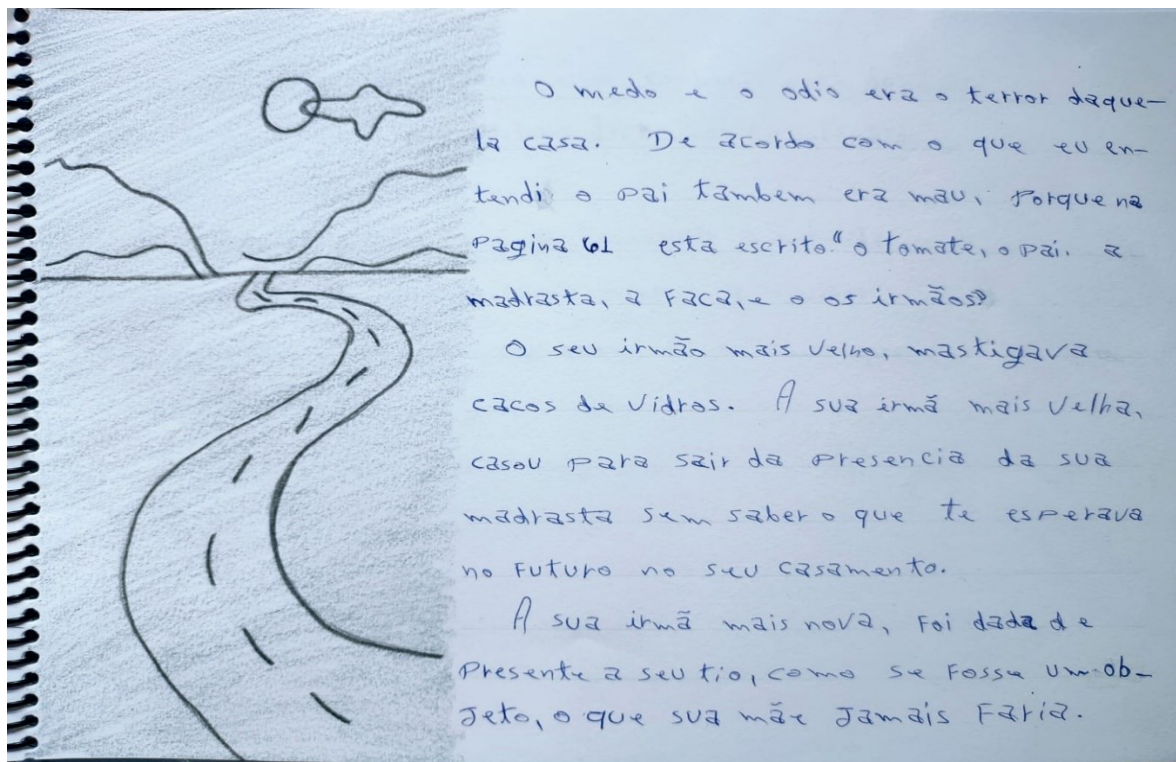 O medo e o odio era o terror daque-
la casa. De acordo com o que eu en-
tendi o pai tambem era mau, porque na
pagina 61 esta escrito "o tomate, o pai. a
madrasta, a faca, e o os irmãos"
O seu irmão mais velho, mastigava
cacos de vidros. A sua irmã mais velha,
casou para sair da presencia da sua
madrasta sem saber o que te esperava
no futuro no seu casamento.
A sua irmã mais nova, foi dada de
presente a seu tio, como se fosse um ob-
jeto, o que sua mãe jamais faria.